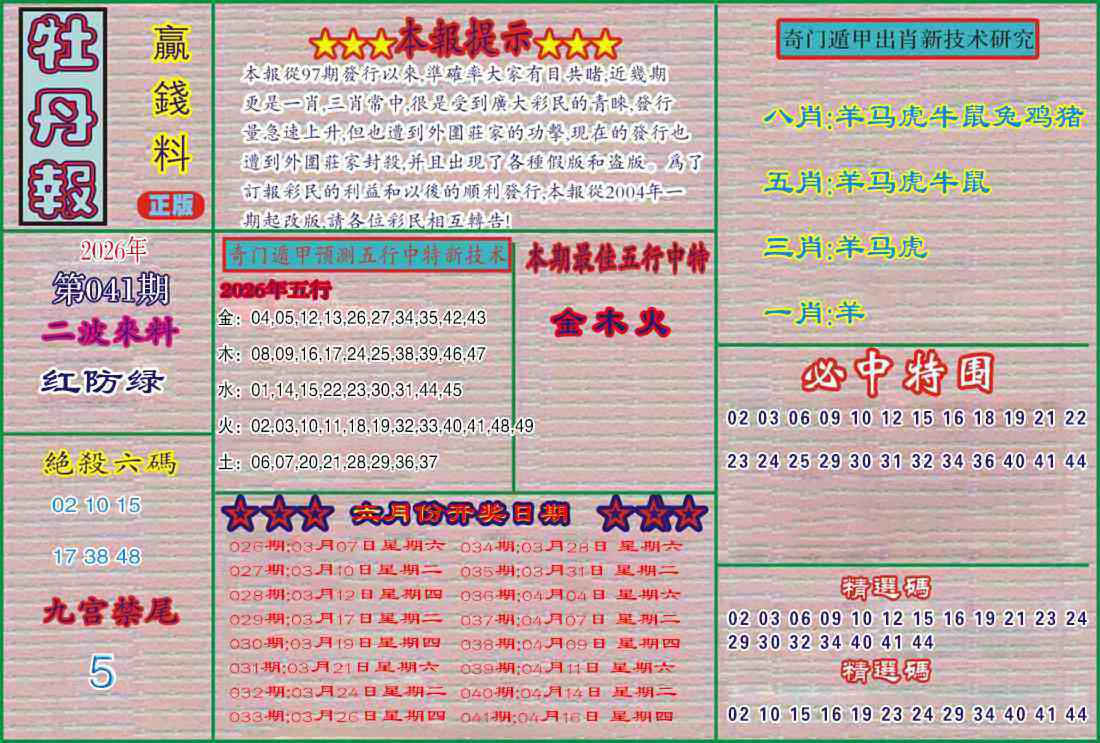 牡丹報
贏錢料
正版
★★★本報提示★★★
本報從97期發行以來,準確率大家有目共睹,近幾期
更是一肖,三肖常中,很是受到廣大彩民的青睞,發行
量急速上升,但也遭到外圍莊家的功擊,現在的發行也
遭到外圍莊家封殺,并且出現了各種假版和盗版。爲了
訂報彩民的利益和以後的順利發行,本報從2004年一
期起改版,請各位彩民相互轉告!
奇门遁甲出肖新技术研究
八肖:羊马虎牛鼠兔鸡猪
五肖:羊马虎牛鼠
三肖:羊马虎
一肖:羊
2026年
第041期
二波來料
红防绿
奇门遁甲预测五行中特新技术
2026年五行
金：04,05,12,13,26,27,34,35,42,43
木：08,09,16,17,24,25,38,39,46,47
水：01,14,15,22,23,30,31,44,45
火：02,03,10,11,18,19,32,33,40,41,48,49
土：06,07,20,21,28,29,36,37
本期最佳五行中特
金木火
必中特围
02 03 06 09 10 12 15 16 18 19 21 22
23 24 25 29 30 31 32 34 36 40 41 44
絕殺六碼
02 10 15
17 38 48
九宫禁尾
5
☆☆☆ 六月份开奖日期 ☆☆☆
026期:03月07日星期六 034期:03月28日 星期六
027期:03月10日星期二 035期:03月31日 星期二
028期:03月12日星期四 036期:04月04日 星期六
029期:03月17日星期二 037期:04月07日 星期二
030期:03月19日星期四 038期:04月09日 星期四
031期:03月21日星期六 039期:04月11日 星期六
032期:03月24日星期二 040期:04月14日 星期二
033期:03月26日星期四 041期:04月16日 星期四
精選碼
02 03 06 09 10 12 15 16 19 21 23 24
29 30 32 34 40 41 44
精選碼
02 10 15 16 19 23 24 29 34 40 41 44